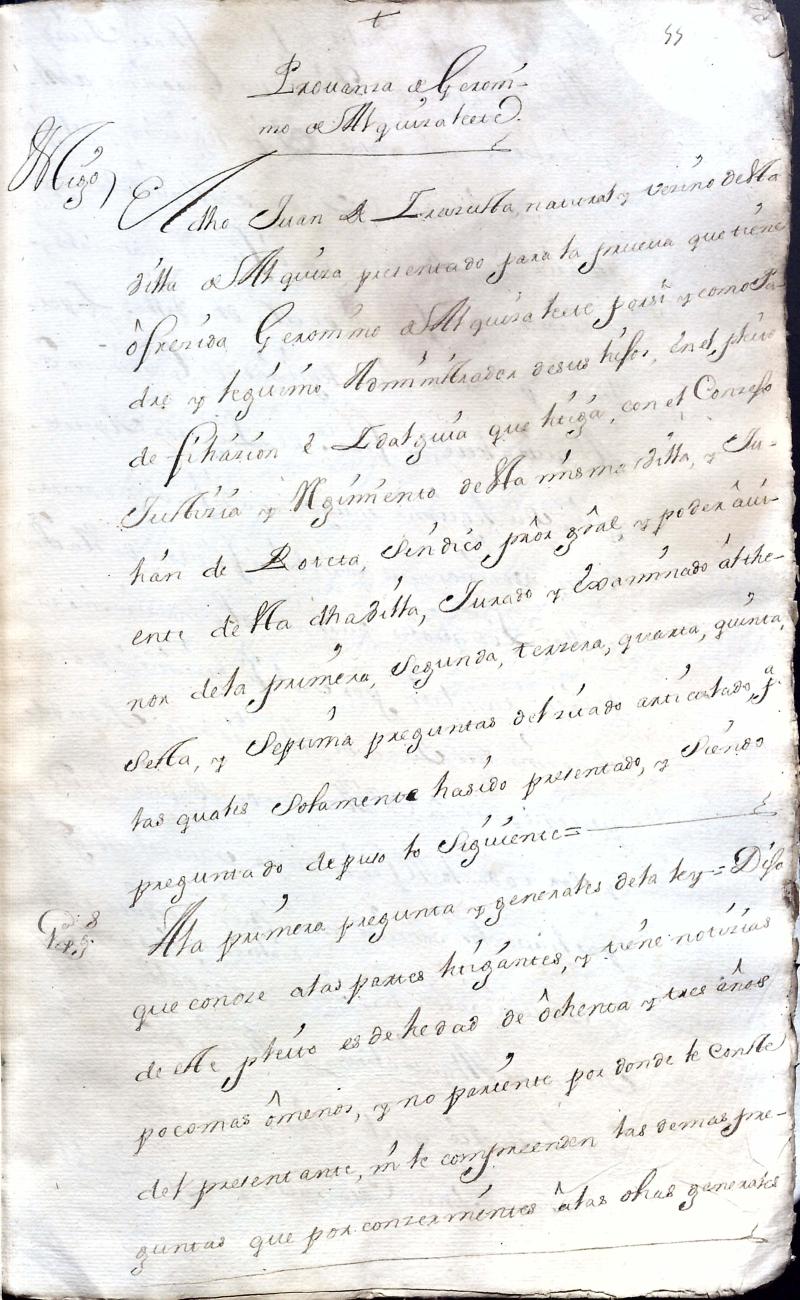 +
55
Provanza de Geroni-
mo de Atquiza leete
Tigo)
El dho Juan de Irazusta, natural y vezino de esta
villa de Atquiza presentado para la prueva que tiene
ôfrezida Geronimo de Atquiza leete, por si y como Pa-
dre y leguitimo Administrador de sus hijos, en el pleito
de filiazion è Idalguia que litiga, con el Conzejo
Justizia y Regimiento desta misma villa, y Ju-
lian de Loteta, Sindico, prôr grâl, y poder âui-
ente desta dha villa, Jurado y Examinado al the-
nor dela primera, segunda, terzera, quarta, quinta,
sesta, y septima preguntas del zitado articulado, pª
las quales solamente hasido presentado, y siendo
preguntado depuso lo siguiente=
Gˢ
Ala primera pregunta y generales dela ley= Dijo
que conoze alas partes litigantes, y tiene notizias
de este pleito es de hedad de ôchenta y tres años
poco mas ômenos, y no pariente por donde le conste
del presentante, ni le compreenden las demas pre-
guntas que por conzernientes âlas dhas generales